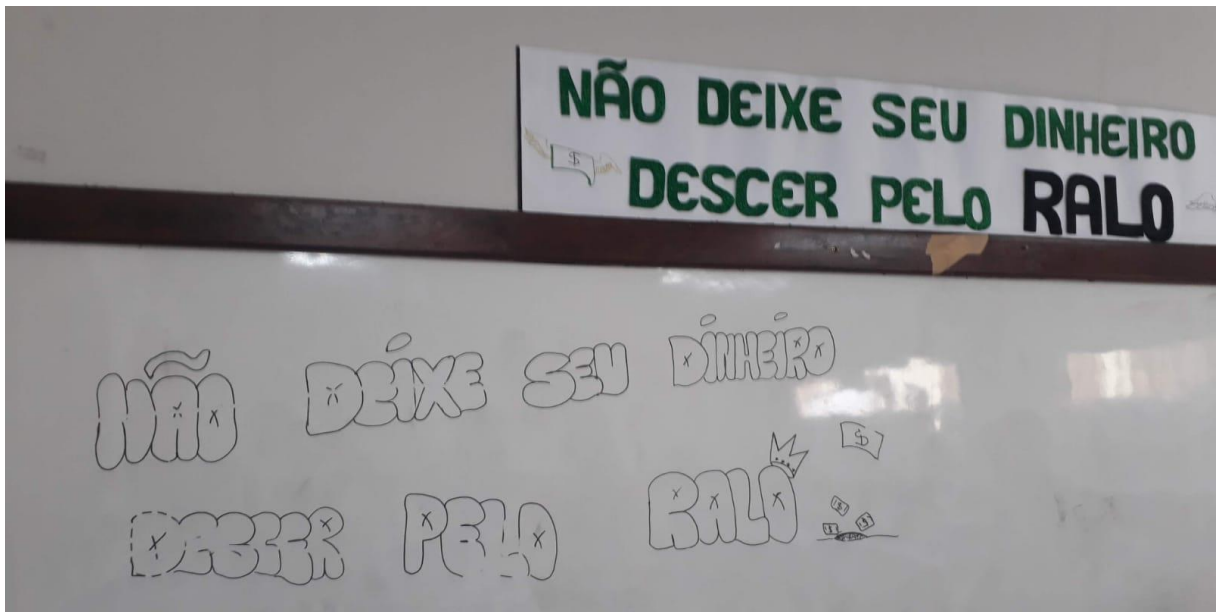 NÃO DEIXE SEU DINHEIRO
$ DESCER PELO RALO
NÃO DEIXE SEU DINHEIRO
$
DESCER PELO RALO
$ $ $